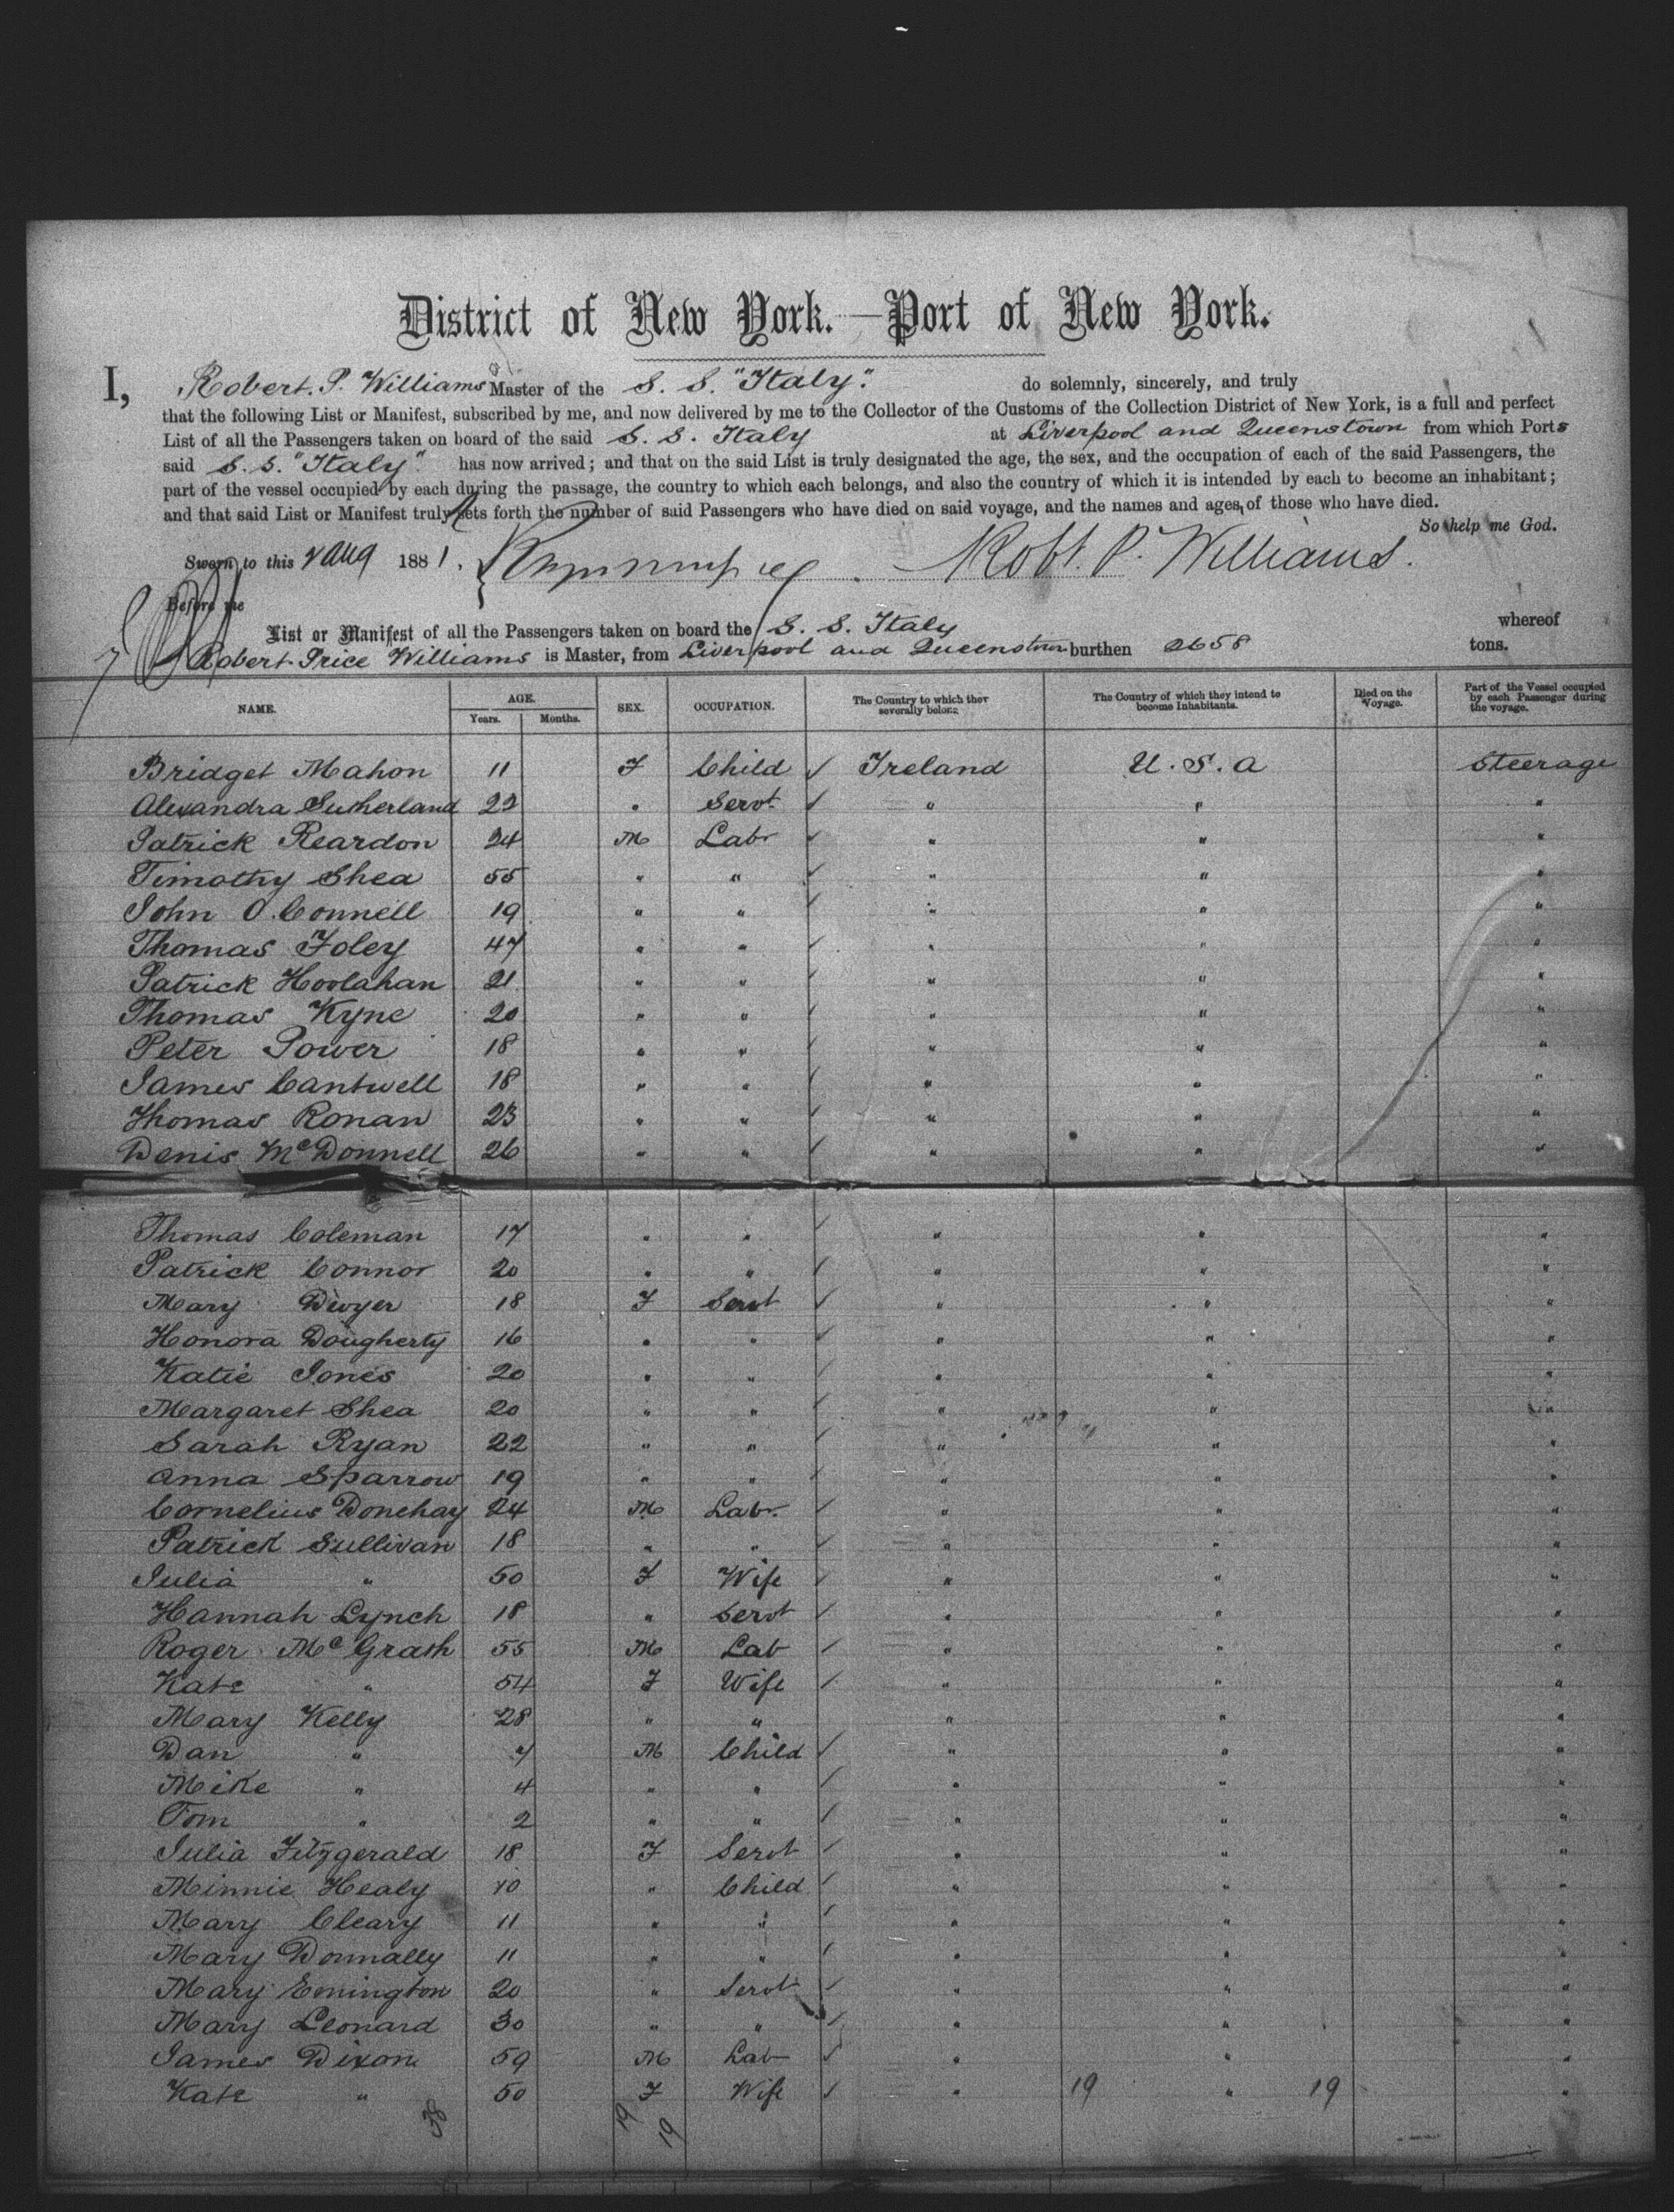 District of New York.—Port of New York.
I, Robert. P. Williams Master of the S. S. "Italy". do solemnly, sincerely, and truly
that the following List or Manifest, subscribed by me, and now delivered by me to the Collector of the Customs of the Collection District of New York, is a full and perfect
List of all the Passengers taken on board of the said S. S. Italy at Liverpool and Queenstown from which Ports
said S. S. "Italy" has now arrived; and that on the said List is truly designated the age, the sex, and the occupation of each of the said Passengers, the
part of the vessel occupied by each during the passage, the country to which each belongs, and also the country of which it is intended by each to become an inhabitant;
and that said List or Manifest truly sets forth the number of said Passengers who have died on said voyage, and the names and ages of those who have died.
So help me God.
Sworn to this Aug 1881. Robt. P. Williams.
Before me
List or Manifest of all the Passengers taken on board the S. S. Italy whereof
Robert Price Williams is Master, from Liverpool and Queenstown burthen 2658 tons.
NAME. AGE. Years. Months. SEX. OCCUPATION. The Country to which they severally belong. The Country of which they intend to become Inhabitants. Died on the Voyage. Part of the Vessel occupied by each Passenger during the voyage.
Bridget Mahon 11 F Child ✓ Ireland U. S. A Steerage
Alexandra Sutherland 22 " Servt ✓ " " "
Patrick Reardon 24 M Labr ✓ " " "
Timothy Shea 55 " " ✓ " " "
John O. Connell 19 " " ✓ " " "
Thomas Foley 47 " " ✓ " " "
Patrick Hoolahan 21 " " ✓ " " "
Thomas Kyne 20 " " ✓ " " "
Peter Power 18 " " ✓ " " "
James Cantwell 18 " " ✓ " " "
Thomas Ronan 23 " " ✓ " " "
Denis McDonnell 26 " " ✓ " " "
Thomas Coleman 17 " " ✓ " " "
Patrick Connor 20 " " ✓ " " "
Mary Dwyer 18 F Servt ✓ " " "
Honora Dougherty 16 " " ✓ " " "
Katie Jones 20 " " ✓ " " "
Margaret Shea 20 " " ✓ " " "
Sarah Ryan 22 " " ✓ " " "
Anna Sparrow 19 " " ✓ " " "
Cornelius Donehay 24 M Labr. ✓ " " "
Patrick Sullivan 18 " " ✓ " " "
Julia " 50 F Wife ✓ " " "
Hannah Lynch 18 " Servt ✓ " " "
Roger McGrath 55 M Lab ✓ " " "
Kate " 54 F Wife ✓ " " "
Mary Kelly 28 " " " " "
Dan " 7 M Child ✓ " " "
Mike " 4 " " ✓ " " "
Tom " 2 " " ✓ " " "
Julia Fitzgerald 18 F Servt ✓ " " "
Minnie Healy 10 " Child ✓ " " "
Mary Cleary 11 " " ✓ " " "
Mary Donnally 11 " " ✓ " " "
Mary Ennington 20 " Servt ✓ " " "
Mary Leonard 30 " " ✓ " " "
James Dixon 59 M Lab ✓ " " "
Kate " 50 F Wife ✓ " 19 " 19 "
38 19 19